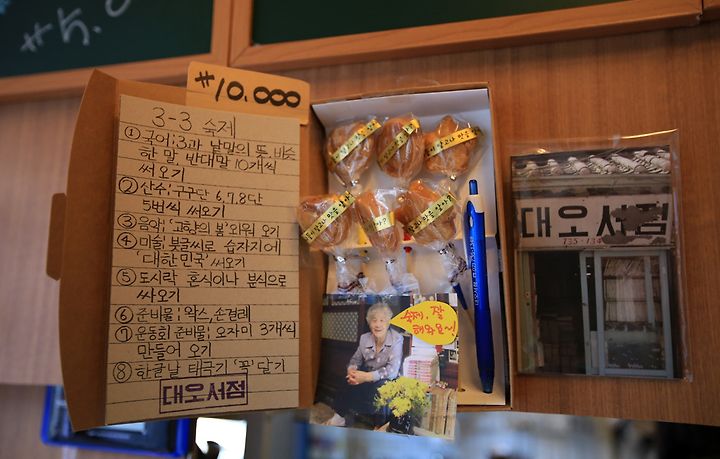 ₩10.000
3-3 숙제
① 국어; 3과 낱말의 뜻, 비슷
한 말, 반대말 10개씩
써오기
② 산수; 구구단 6,7,8단
5번씩 써오기
③ 음악; '고향의 봄' 외워 오기
④ 미술; 붓글씨로 습자지에
'대한민국' 써오기
⑤ 도시락 혼식이나 분식으로
싸오기
⑥ 준비물; 왁스, 손걸레
⑦ 운동회 준비물; 오자미 3개씩
만들어 오기
⑧ 한글날 태극기 '꼭' 달기
대오서점
숙제, 잘
해와요~!
대오서점
대오서점